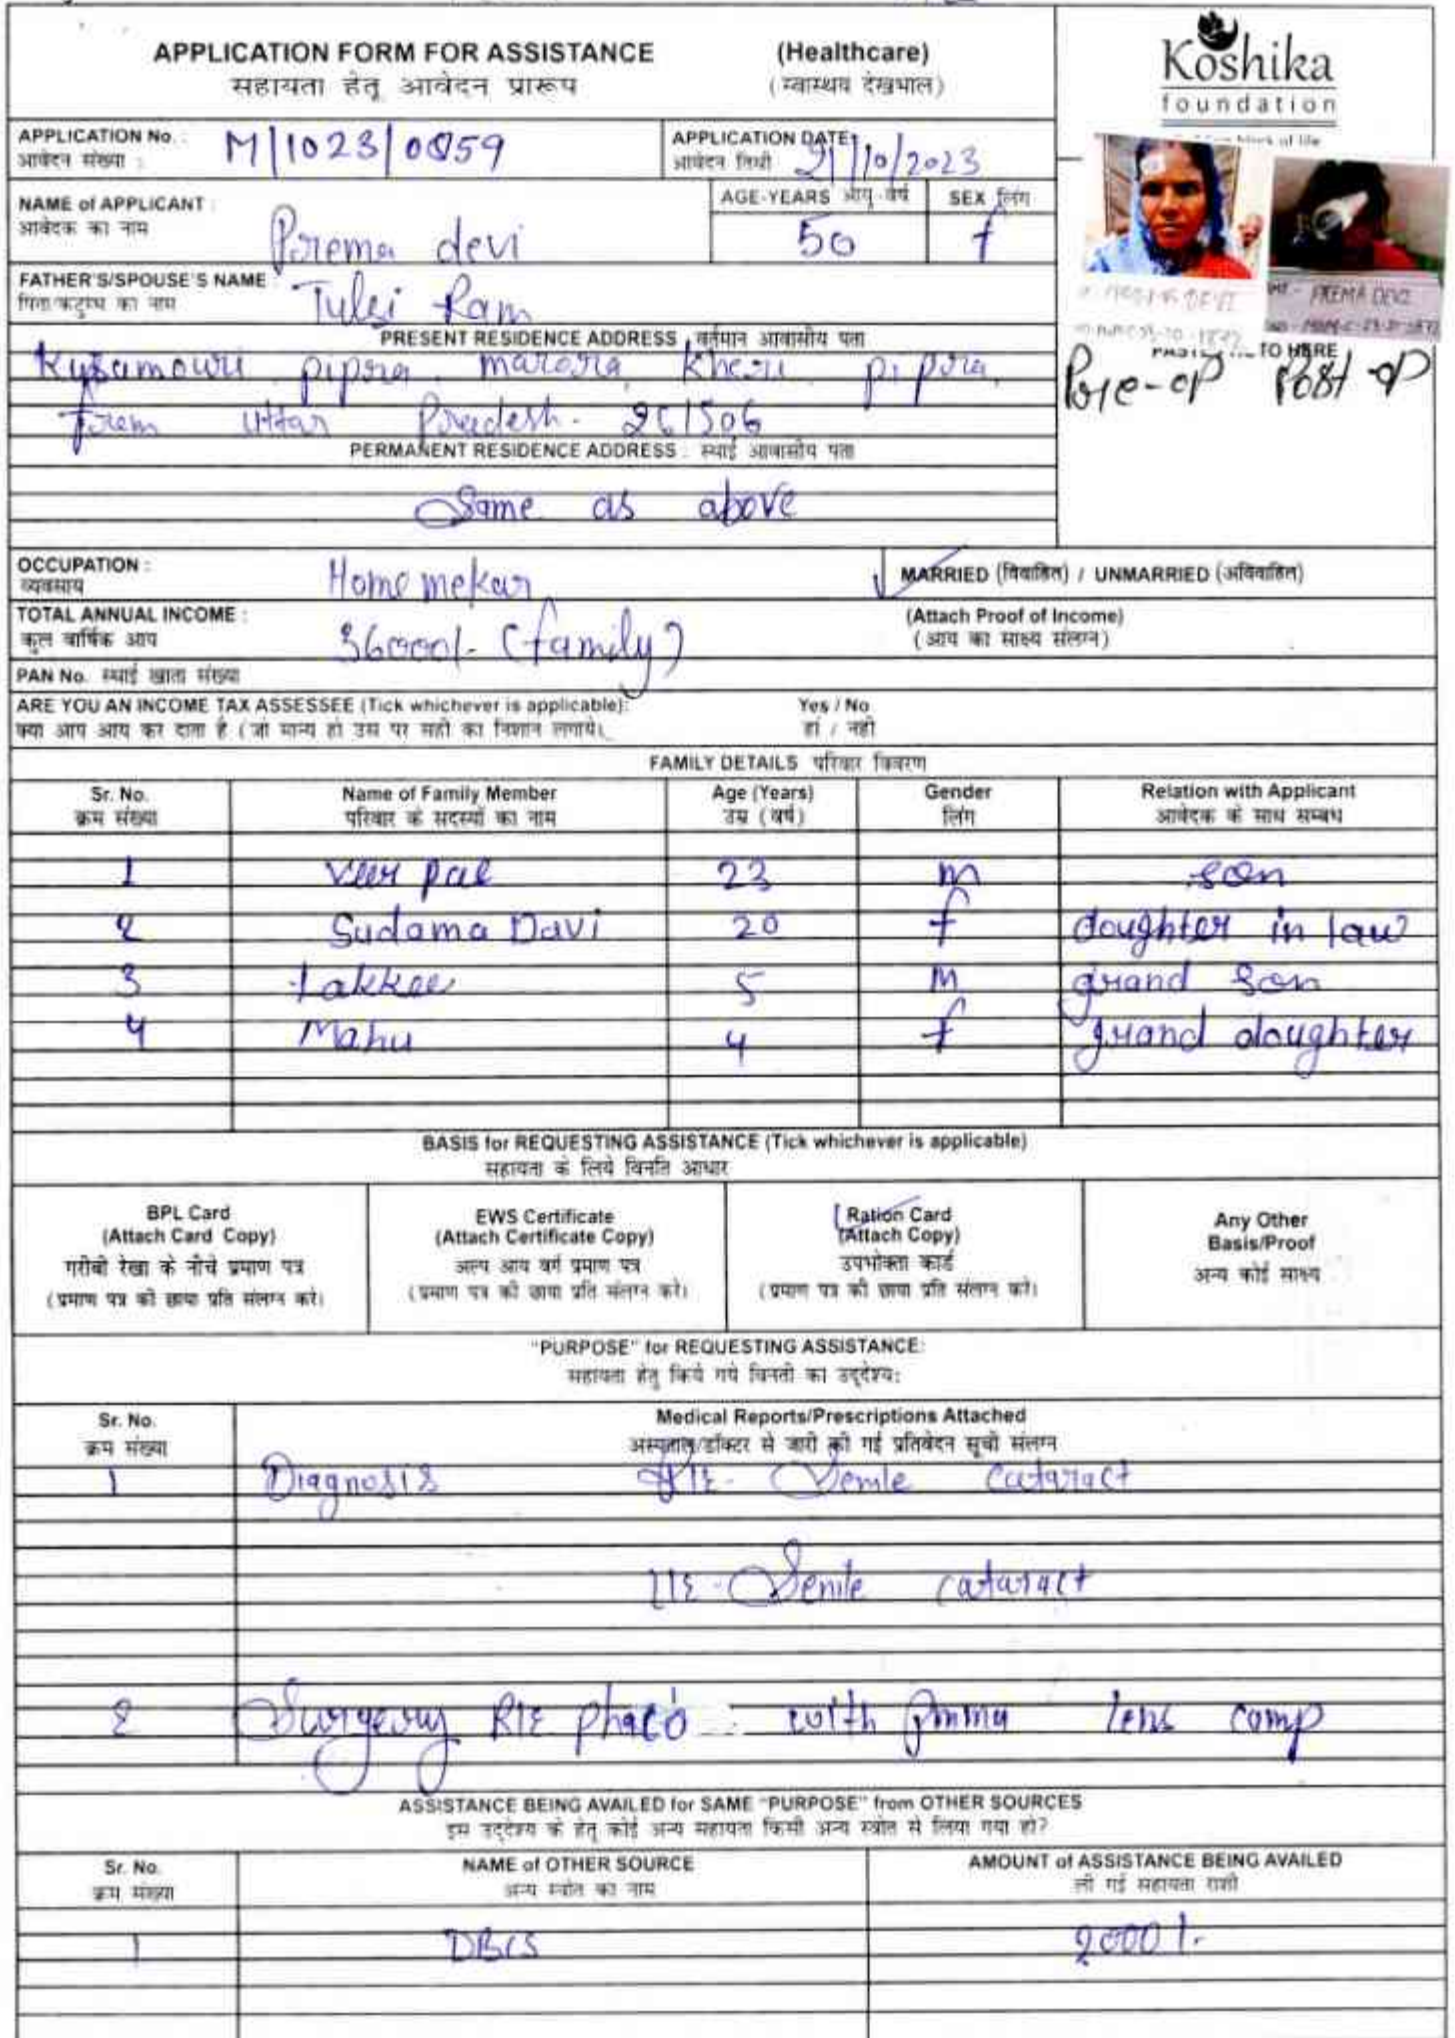 APPLICATION FORM FOR ASSISTANCE (Healthcare)
सहायता हेतू आवेदन प्रारूप (स्वास्थय देखभाल)
Koshika
foundation
APPLICATION No. : M/1023/0859
आवेदन संख्या :
APPLICATION DATE: 21/10/2023
आवेदन तिथी
NAME of APPLICANT : Prema devi
आवेदक का नाम
AGE-YEARS आयु-वर्ष 50
SEX लिंग f
FATHER'S/SPOUSE'S NAME : Tulsi Ram
पिता/कटुम्ब का नाम
PREMA DEVI
PRESENT RESIDENCE ADDRESS : वर्तमान आवासीय पता
pipra marora kheri pipra,
Uttar Pradesh- 261506
TO HERE
Pre-op Post op
PERMANENT RESIDENCE ADDRESS : स्थाई आवासीय पता
Same as above
OCCUPATION : Home meker
व्यवसाय
MARRIED (विवाहित) / UNMARRIED (अविवाहित)
TOTAL ANNUAL INCOME : 36000/- (family)
कुल वार्षिक आय
(Attach Proof of Income)
(आय का साक्ष्य संलग्न)
PAN No. स्थाई खाता संख्या
ARE YOU AN INCOME TAX ASSESSEE (Tick whichever is applicable): Yes / No
क्या आप आय कर दाता है (जो मान्य हो उस पर सही का निशान लगाये। हां / नही
FAMILY DETAILS परिवार विवरण
Sr. No. Name of Family Member Age (Years) Gender Relation with Applicant
क्रम संख्या परिवार के सदस्यों का नाम उम्र (वर्ष) लिंग आवेदक के साथ सम्बध
1 Veer pal 23 m son
2 Sudama Davi 20 f doughter in law
3 Lakkee 5 M grand son
4 Mahu 4 f grand doughter
BASIS for REQUESTING ASSISTANCE (Tick whichever is applicable)
सहायता के लिये विनति आधार
BPL Card
(Attach Card Copy)
गरीबी रेखा के नीचे प्रमाण पत्र
(प्रमाण पत्र की छाया प्रति संलग्न करे।
EWS Certificate
(Attach Certificate Copy)
अल्प आय वर्ग प्रमाण पत्र
(प्रमाण पत्र की छाया प्रति संलग्न करे।
Ration Card
(Attach Copy)
उपभोक्ता कार्ड
(प्रमाण पत्र की छाया प्रति संलग्न करे।
Any Other
Basis/Proof
अन्य कोई साक्ष्य
"PURPOSE" for REQUESTING ASSISTANCE:
सहायता हेतु किये गये विनती का उद्देश्य:
Sr. No. Medical Reports/Prescriptions Attached
क्रम संख्या अस्पताल/डॉक्टर से जारी की गई प्रतिवेदन सूची संलग्न
1 Diagnosis R/E- Senile cataract
L/E- Senile cataract
2 Surgery R/E phaco with pmma lens camp
ASSISTANCE BEING AVAILED for SAME "PURPOSE" from OTHER SOURCES
इस उद्देश्य के हेतू कोई अन्य सहायता किसी अन्य स्त्रोत से लिया गया हो?
Sr. No. NAME of OTHER SOURCE AMOUNT of ASSISTANCE BEING AVAILED
क्रम संख्या अन्य स्त्रोत का नाम ली गई सहायता राशी
1 DBCS 2000/-